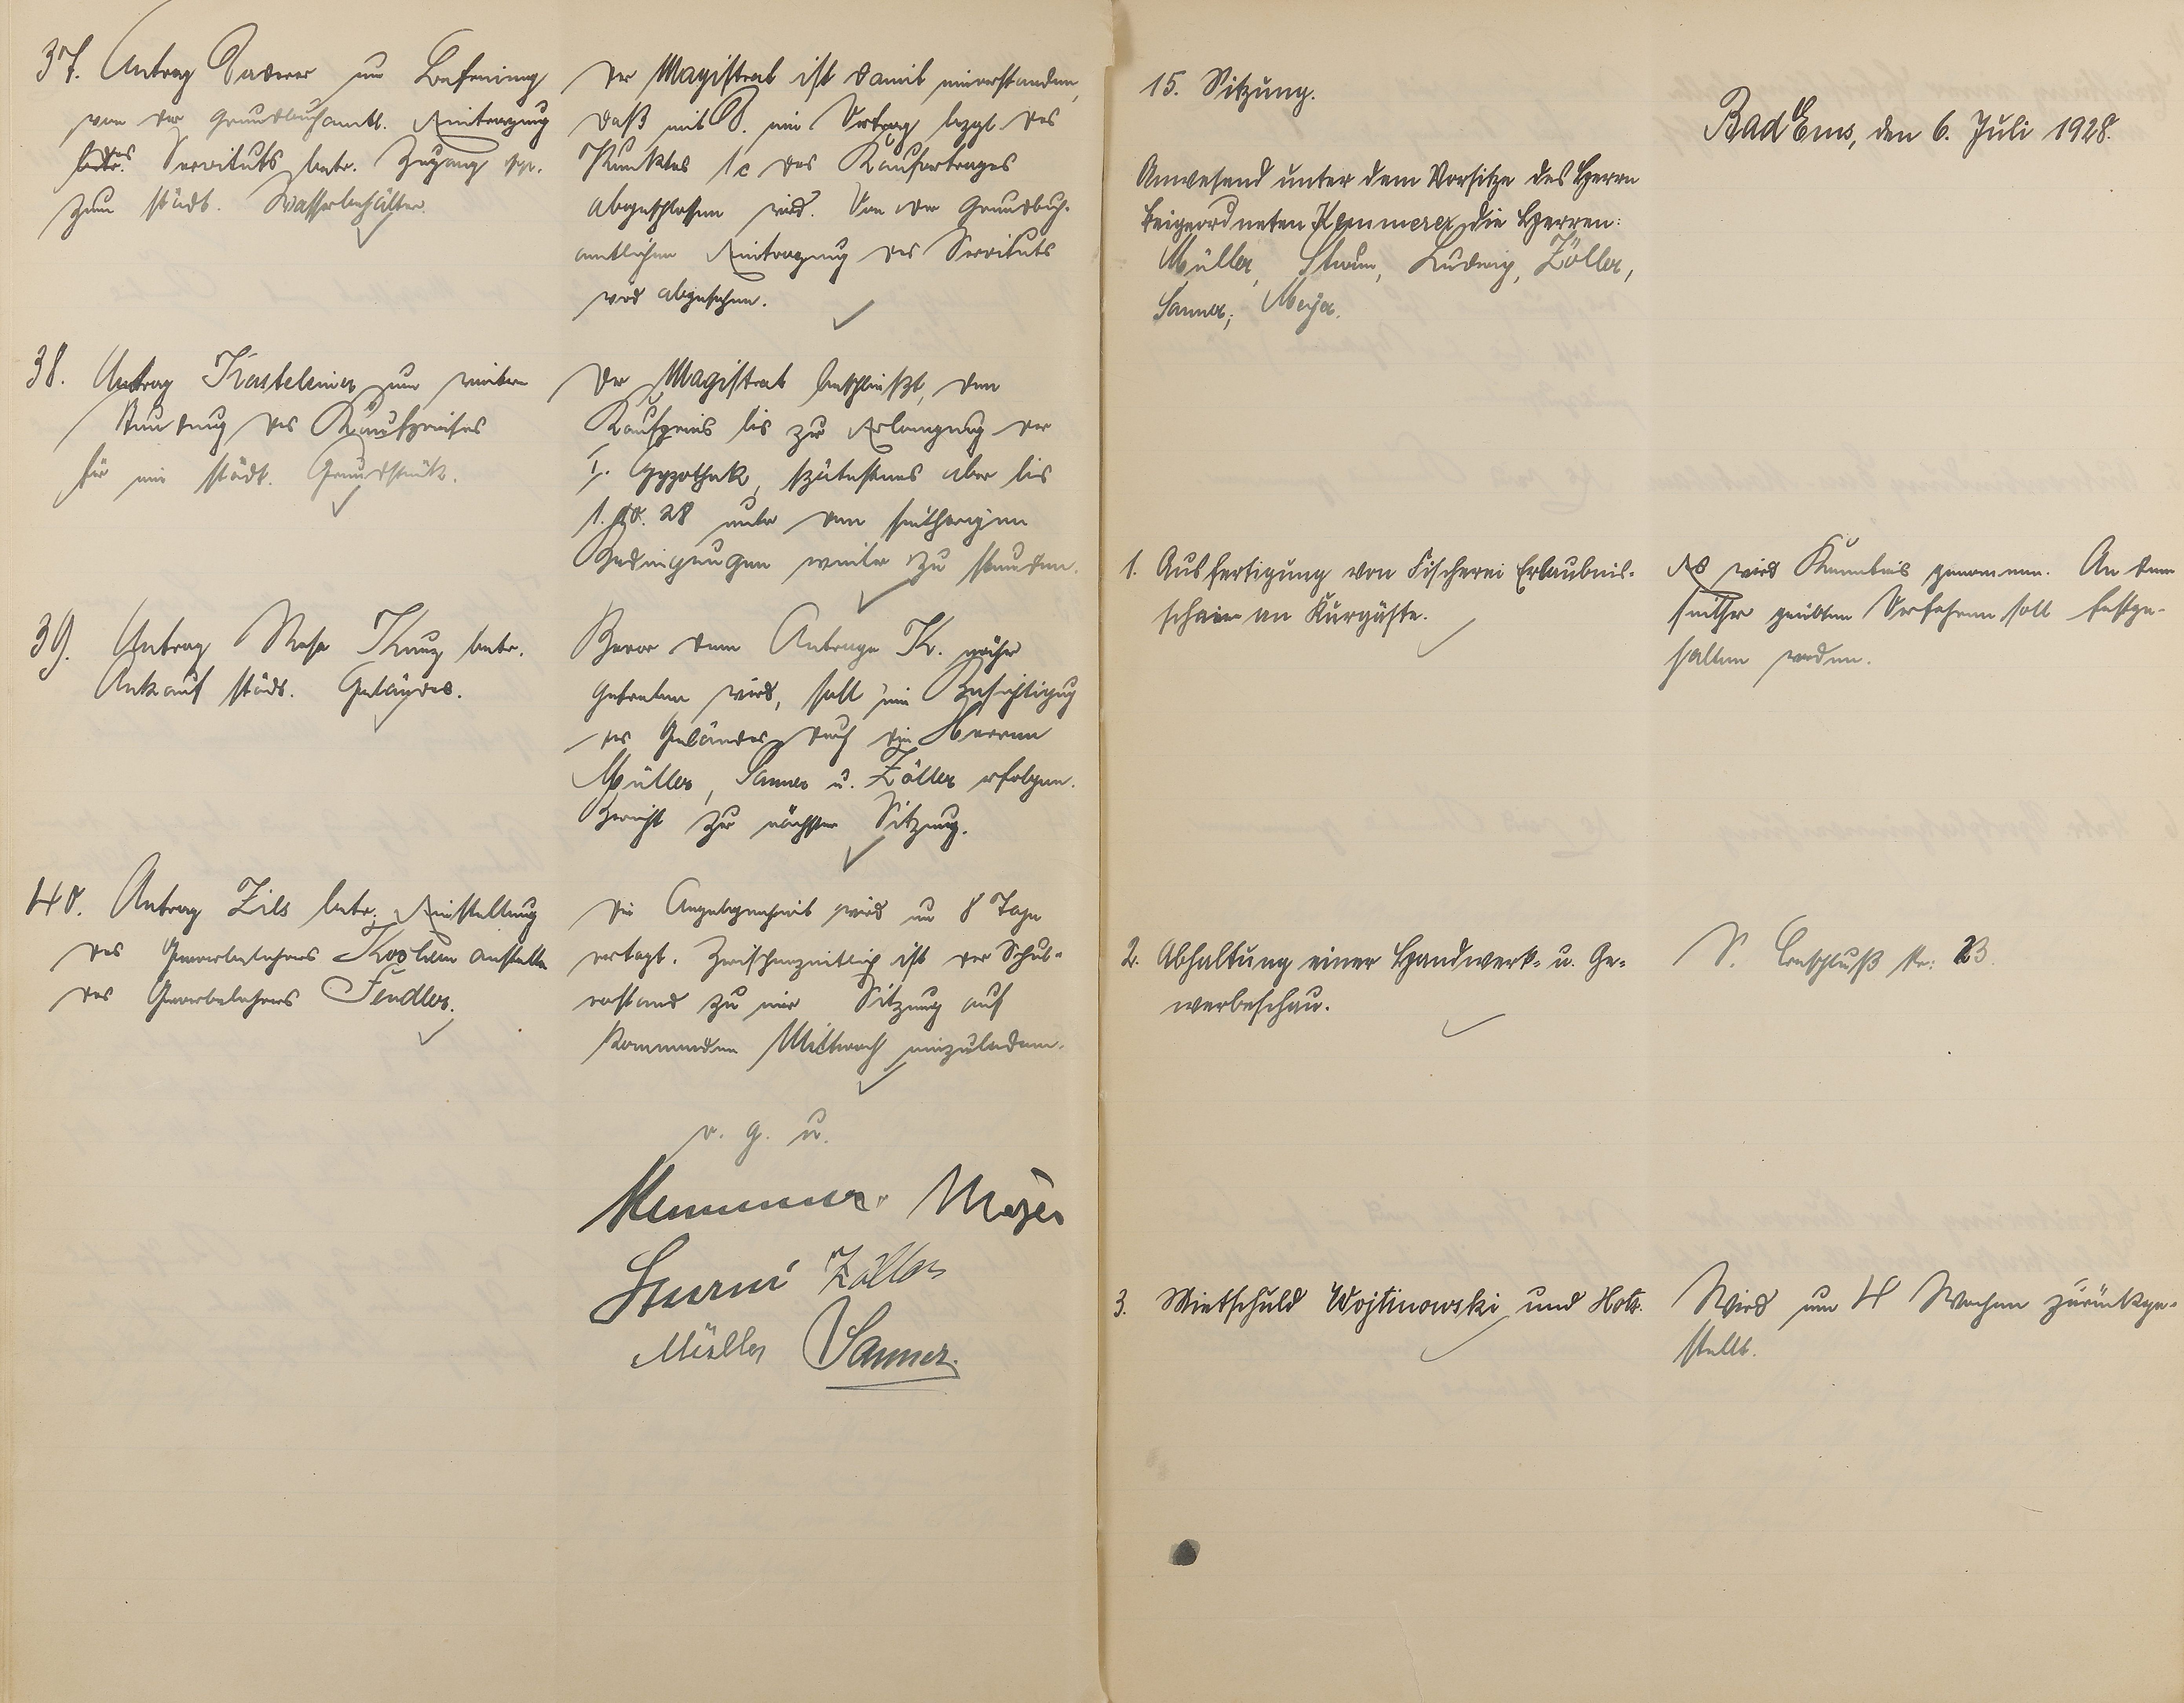 37. Antrag Paderer um Befreiung
von der grundbuchamtl. Eintragung
des Servituts betr. Zugang pp.
zum städt. Wasserbehälter.
Der Magistrat ist damit einverstanden,
daß mit P. ein Vertrag bezgl. des
Punktes 1c des Kaufvertrages
abgeschlossen wird. Von der grundbuch-
amtlichen Eintragung des Servituts
wird abgesehen.
38. Antrag Kasteleiner um weitere
Stundung des Kaufpreises
für ein städt. Grundstück.
Der Magistrat beschließt, den
Kaufpreis bis zur Erlangung der
I. Hypothek, spätestens aber bis
1. 10. 28 unter den seitherigen
Bedingungen weiter zu stunden.
39. Antrag Rosa Kauz betr.
Ankauf städt. Geländes.
Bevor dem Antrage K. näher
getreten wird, soll eine Besichtigung
des Geländes durch die Herren
Müller, Sanner u. Zöller erfolgen.
Bericht zur nächsten Sitzung.
40. Antrag Zils betr. Einstellung
des Gewerbelehrers anstelle
des Gewerbelehrers Fendler.
Die Angelegenheit wird um 8 Tage
vertagt. Zwischenzeitlich ist der Schul-
vorstand zu einer Sitzung auf
kommenden Mittwoch einzuladen.
v. g. u.
Kemmerer Meyer
Sturm Zöller
Müller Sanner.
15. Sitzung.
Bad Ems, den 6. Juli 1928.
Anwesend unter dem Vorsitze des Herrn
Beigeordneten Kemmerer die Herren:
Müller, Sturm, Ludwig, Zöller,
Sanner, Meyer.
1. Ausfertigung von Fischerei Erlaubnis-
schein an Kurgäste.
Es wird Kenntnis genommen. An dem
seither geübten Verfahren soll festge-
halten werden.
2. Abhaltung einer Handwerk- u. Ge-
werbeschau.
S. Beschluß Nr: 23.
3. Mietschuld Wojtinowski und Holt.
Wird um 4 Wochen zurückge-
stellt.